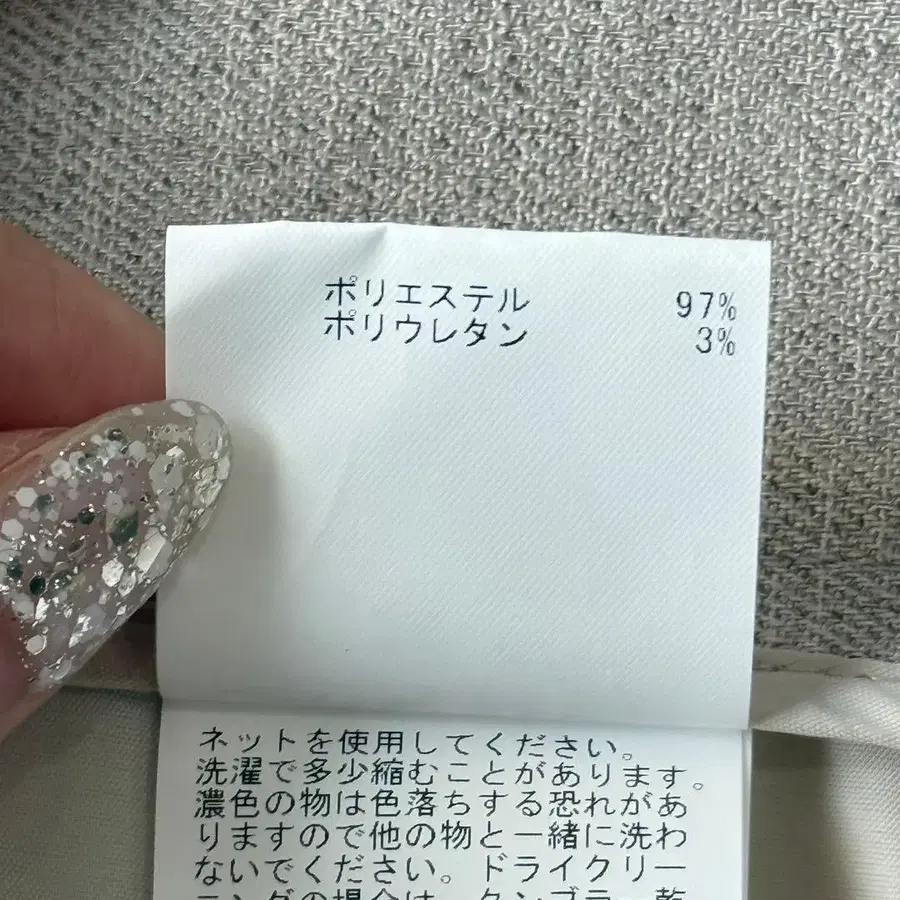 ポリエステル 97%
ポリウレタン 3%
ネットを使用してください。
洗濯で多少縮むことがあります。
濃色の物は色落ちする恐れがあ
りますので他の物と一緒に洗わ
ないでください。ドライクリー
ニングの場合は、タンブラー乾